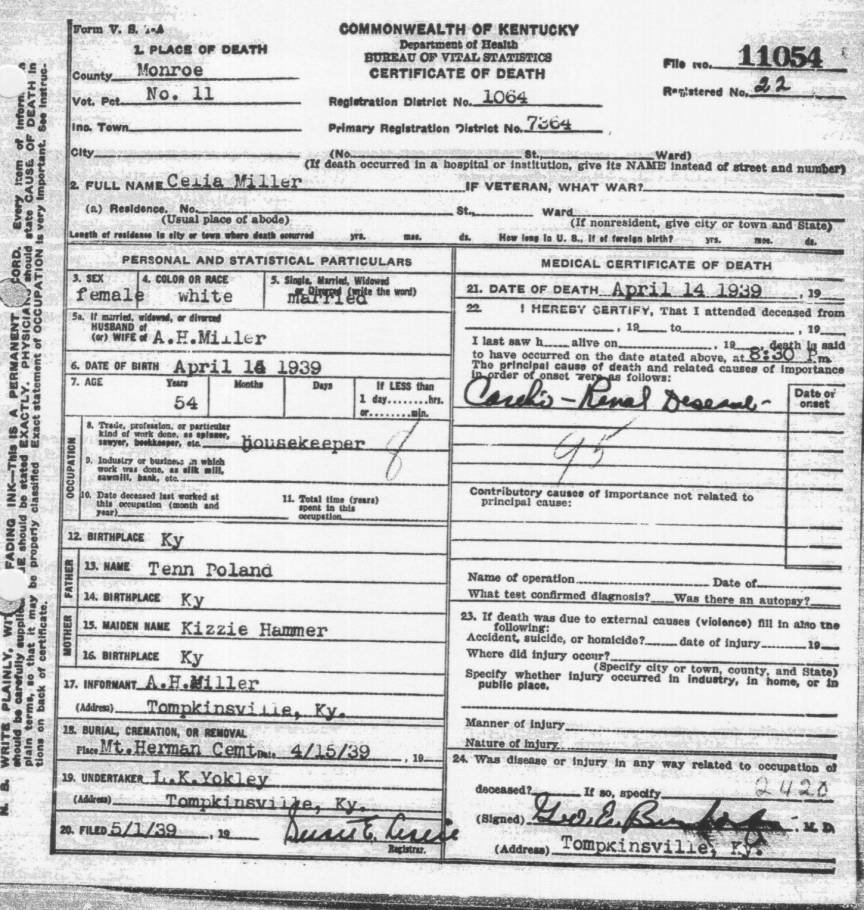 Form V. S. 1-A
COMMONWEALTH OF KENTUCKY
Department of Health
BUREAU OF VITAL STATISTICS
CERTIFICATE OF DEATH
File No. 11054
Registered No. 22
1. PLACE OF DEATH
County Monroe
Vot. Pct. No. 11
Registration District No. 1064
Inc. Town
Primary Registration District No. 7364
City (No. St., Ward)
(If death occurred in a hospital or institution, give its NAME instead of street and number)
2. FULL NAME Celia Miller IF VETERAN, WHAT WAR?
(a) Residence. No. St., Ward
(Usual place of abode) (If nonresident, give city or town and State)
Length of residence in city or town where death occurred yrs. mos. ds. How long in U. S., if of foreign birth? yrs. mos. ds.
PERSONAL AND STATISTICAL PARTICULARS
3. SEX female
4. COLOR OR RACE white
5. Single, Married, Widowed
or Divorced (write the word)
married
5a. If married, widowed, or divorced
HUSBAND of
(or) WIFE of A.H.Miller
6. DATE OF BIRTH April 14 1939
7. AGE Years Months Days If LESS than
54 1 day........hrs.
or........min.
OCCUPATION
8. Trade, profession, or particular
kind of work done, as spinner,
sawyer, bookkeeper, etc. housekeeper
8
9. Industry or business in which
work was done, as silk mill,
sawmill, bank, etc.
10. Date deceased last worked at
this occupation (month and
year)
11. Total time (years)
spent in this
occupation
12. BIRTHPLACE Ky
FATHER
13. NAME Tenn Poland
14. BIRTHPLACE Ky
MOTHER
15. MAIDEN NAME Kizzie Hammer
16. BIRTHPLACE Ky
17. INFORMANT A.H.Miller
(Address) Tompkinsville, Ky.
18. BURIAL, CREMATION, OR REMOVAL
Place Mt.Herman Cemt Date 4/15/39, 19
19. UNDERTAKER L.K.Yokley
(Address) Tompkinsville, Ky.
20. FILED 5/1/39, 19
Registrar.
MEDICAL CERTIFICATE OF DEATH
21. DATE OF DEATH April 14 1939, 19
22. I HEREBY CERTIFY, That I attended deceased from
, 19 to , 19
I last saw h alive on , 19 death is said
to have occurred on the date stated above, at 8:30 P m.
The principal cause of death and related causes of importance
in order of onset were as follows:
Date of
onset
Cardio-Renal Desease-
95
Contributory causes of importance not related to
principal cause:
Name of operation Date of
What test confirmed diagnosis? Was there an autopsy?
23. If death was due to external causes (violence) fill in also the
following:
Accident, suicide, or homicide? date of injury 19
Where did injury occur?
(Specify city or town, county, and State)
Specify whether injury occurred in industry, in home, or in
public place.
Manner of injury
Nature of injury
24. Was disease or injury in any way related to occupation of
deceased? If so, specify 2420
(Signed) Geo. E. , M. D.
(Address) Tompkinsville, Ky.
N. B. WRITE PLAINLY, FADING INK—THIS IS A PERMANENT CORD. Every item of
should be carefully supplied. should be stated EXACTLY. should state CAUSE OF DEATH in
plain terms, so that it may be properly classified. Exact statement of OCCUPATION is very important. See
tions on back of certificate.